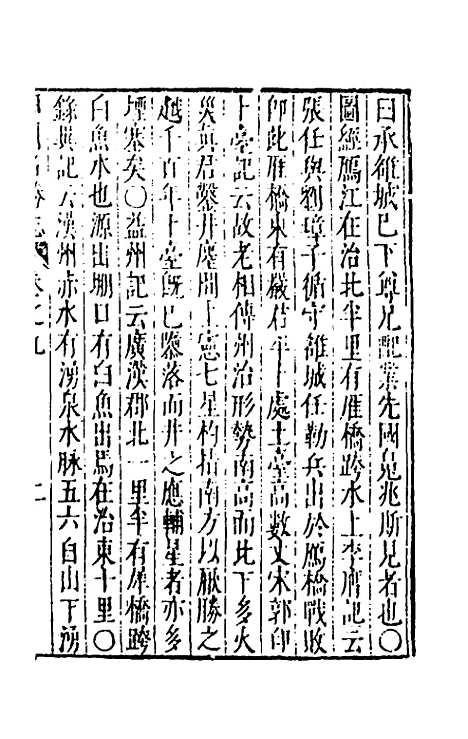 曰承雒城已下蹲兄配業先國鬼兆斯兄者也〇
圖經鴈江在治北半里有雁橋跨水上李膺記云
張任與劉璋子循守雒城任勒兵出於鴈橋戰敗
即此雁橋東有嚴君平卜處土臺高數丈宋郭印
卜臺記云故老相傳州治形勢南高而北下多火
災真君鑿井廛間上憲七星杓梏南方以厭勝之
越千百年卜臺旣已隳落而井之應輔星者亦多
堙塞矣〇益州記云廣漢郡北一里半有犀橋跨
白魚水也源出堋口有白魚出焉在治東十里〇
錄異記云漢州赤水有湧泉水脉五六自山下湧
勝志 卷之九 二